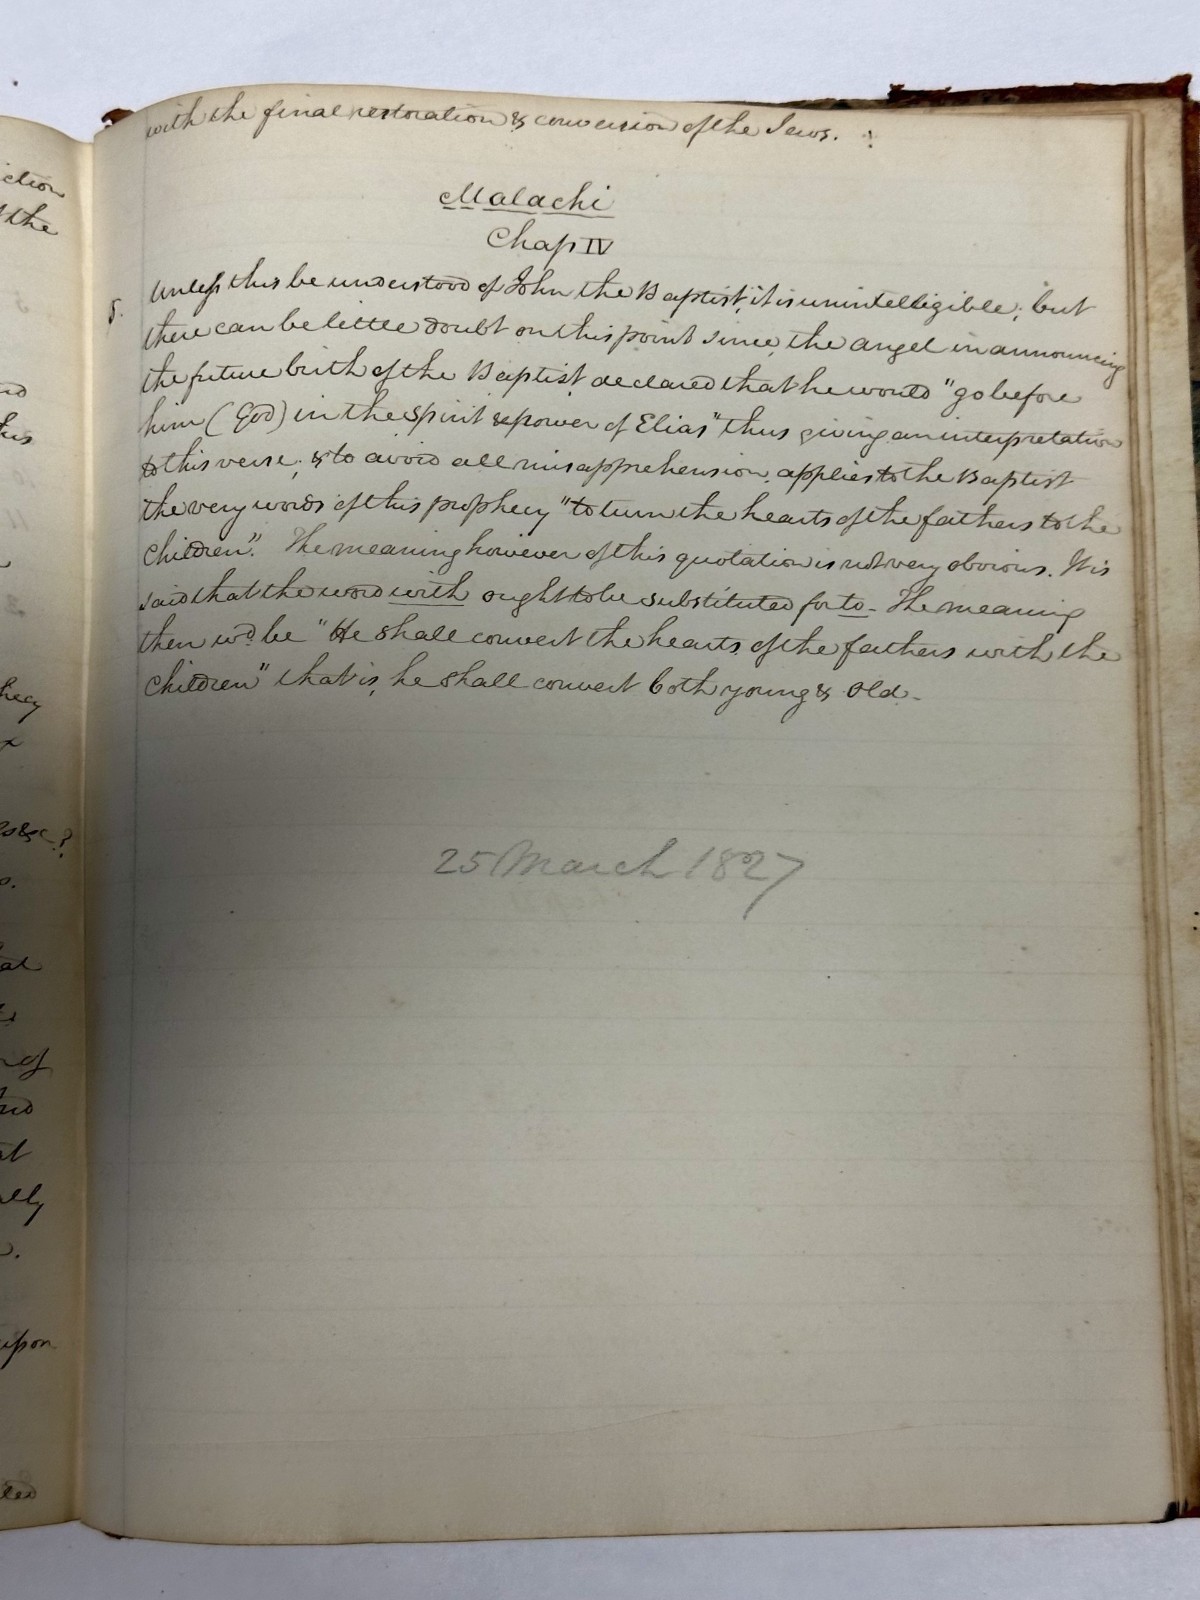 with the final restoration & conversion of the Jews. !
Malachi
Chap IV
5. Unless this be understood of John the Baptist, it is unintelligible; but
there can be little doubt on this point since, the angel in announcing
the future birth of the Baptist declared that he would "go before
him (God) in the spirit & power of Elias" thus giving an interpretation
to this verse; & to avoid all misapprehension, applies to the Baptist
the very words of this prophecy "to turn the hearts of the fathers to the
children". The meaning however of this quotation is not very obvious. It is
said that the word with ought to be substituted for to - The meaning
then wd be "He shall convert the hearts of the fathers with the
children" that is, he shall convert both young & old -
25 March 1827
iction
the
hecy
&c?
at
of
at
ally
upon